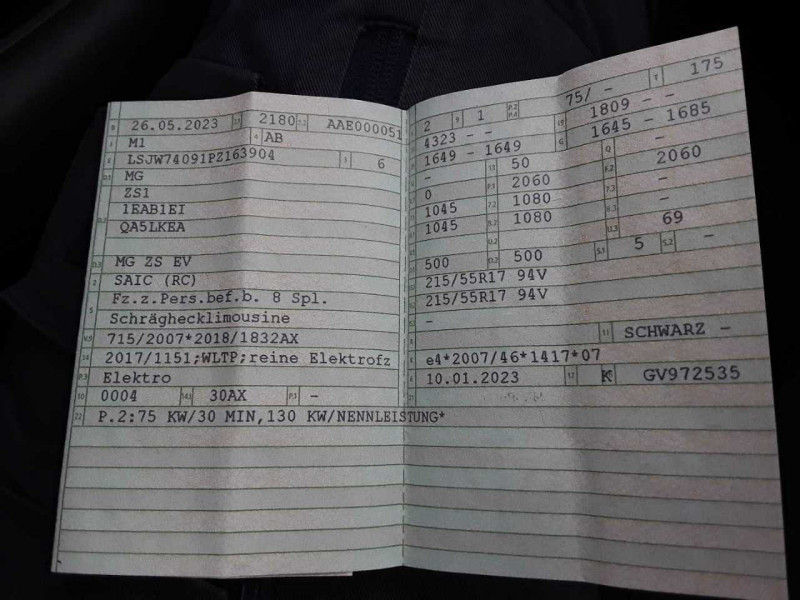 26.05.2023 2180 AAE000051
M1 AB
LSJW74091PZ163904 6
MG
ZS1
1EAB1EI
QA5LKEA
MG ZS EV
SAIC (RC)
Fz.z.Pers.bef.b. 8 Spl.
Schräghecklimousine
715/2007*2018/1832AX
2017/1151;WLTP;reine Elektrofz
Elektro
0004 30AX -
P.2:75 KW/30 MIN,130 KW/NENNLEISTUNG*
2 1 75/ - 175
4323 - - 1809 - -
1649 - 1649 1645 - 1685
- 50 -
0 2060 2060
1045 1080 -
1045 1080 -
69
500 500 5 -
215/55R17 94V
215/55R17 94V
-
SCHWARZ -
e4*2007/46*1417*07
10.01.2023 K GV972535